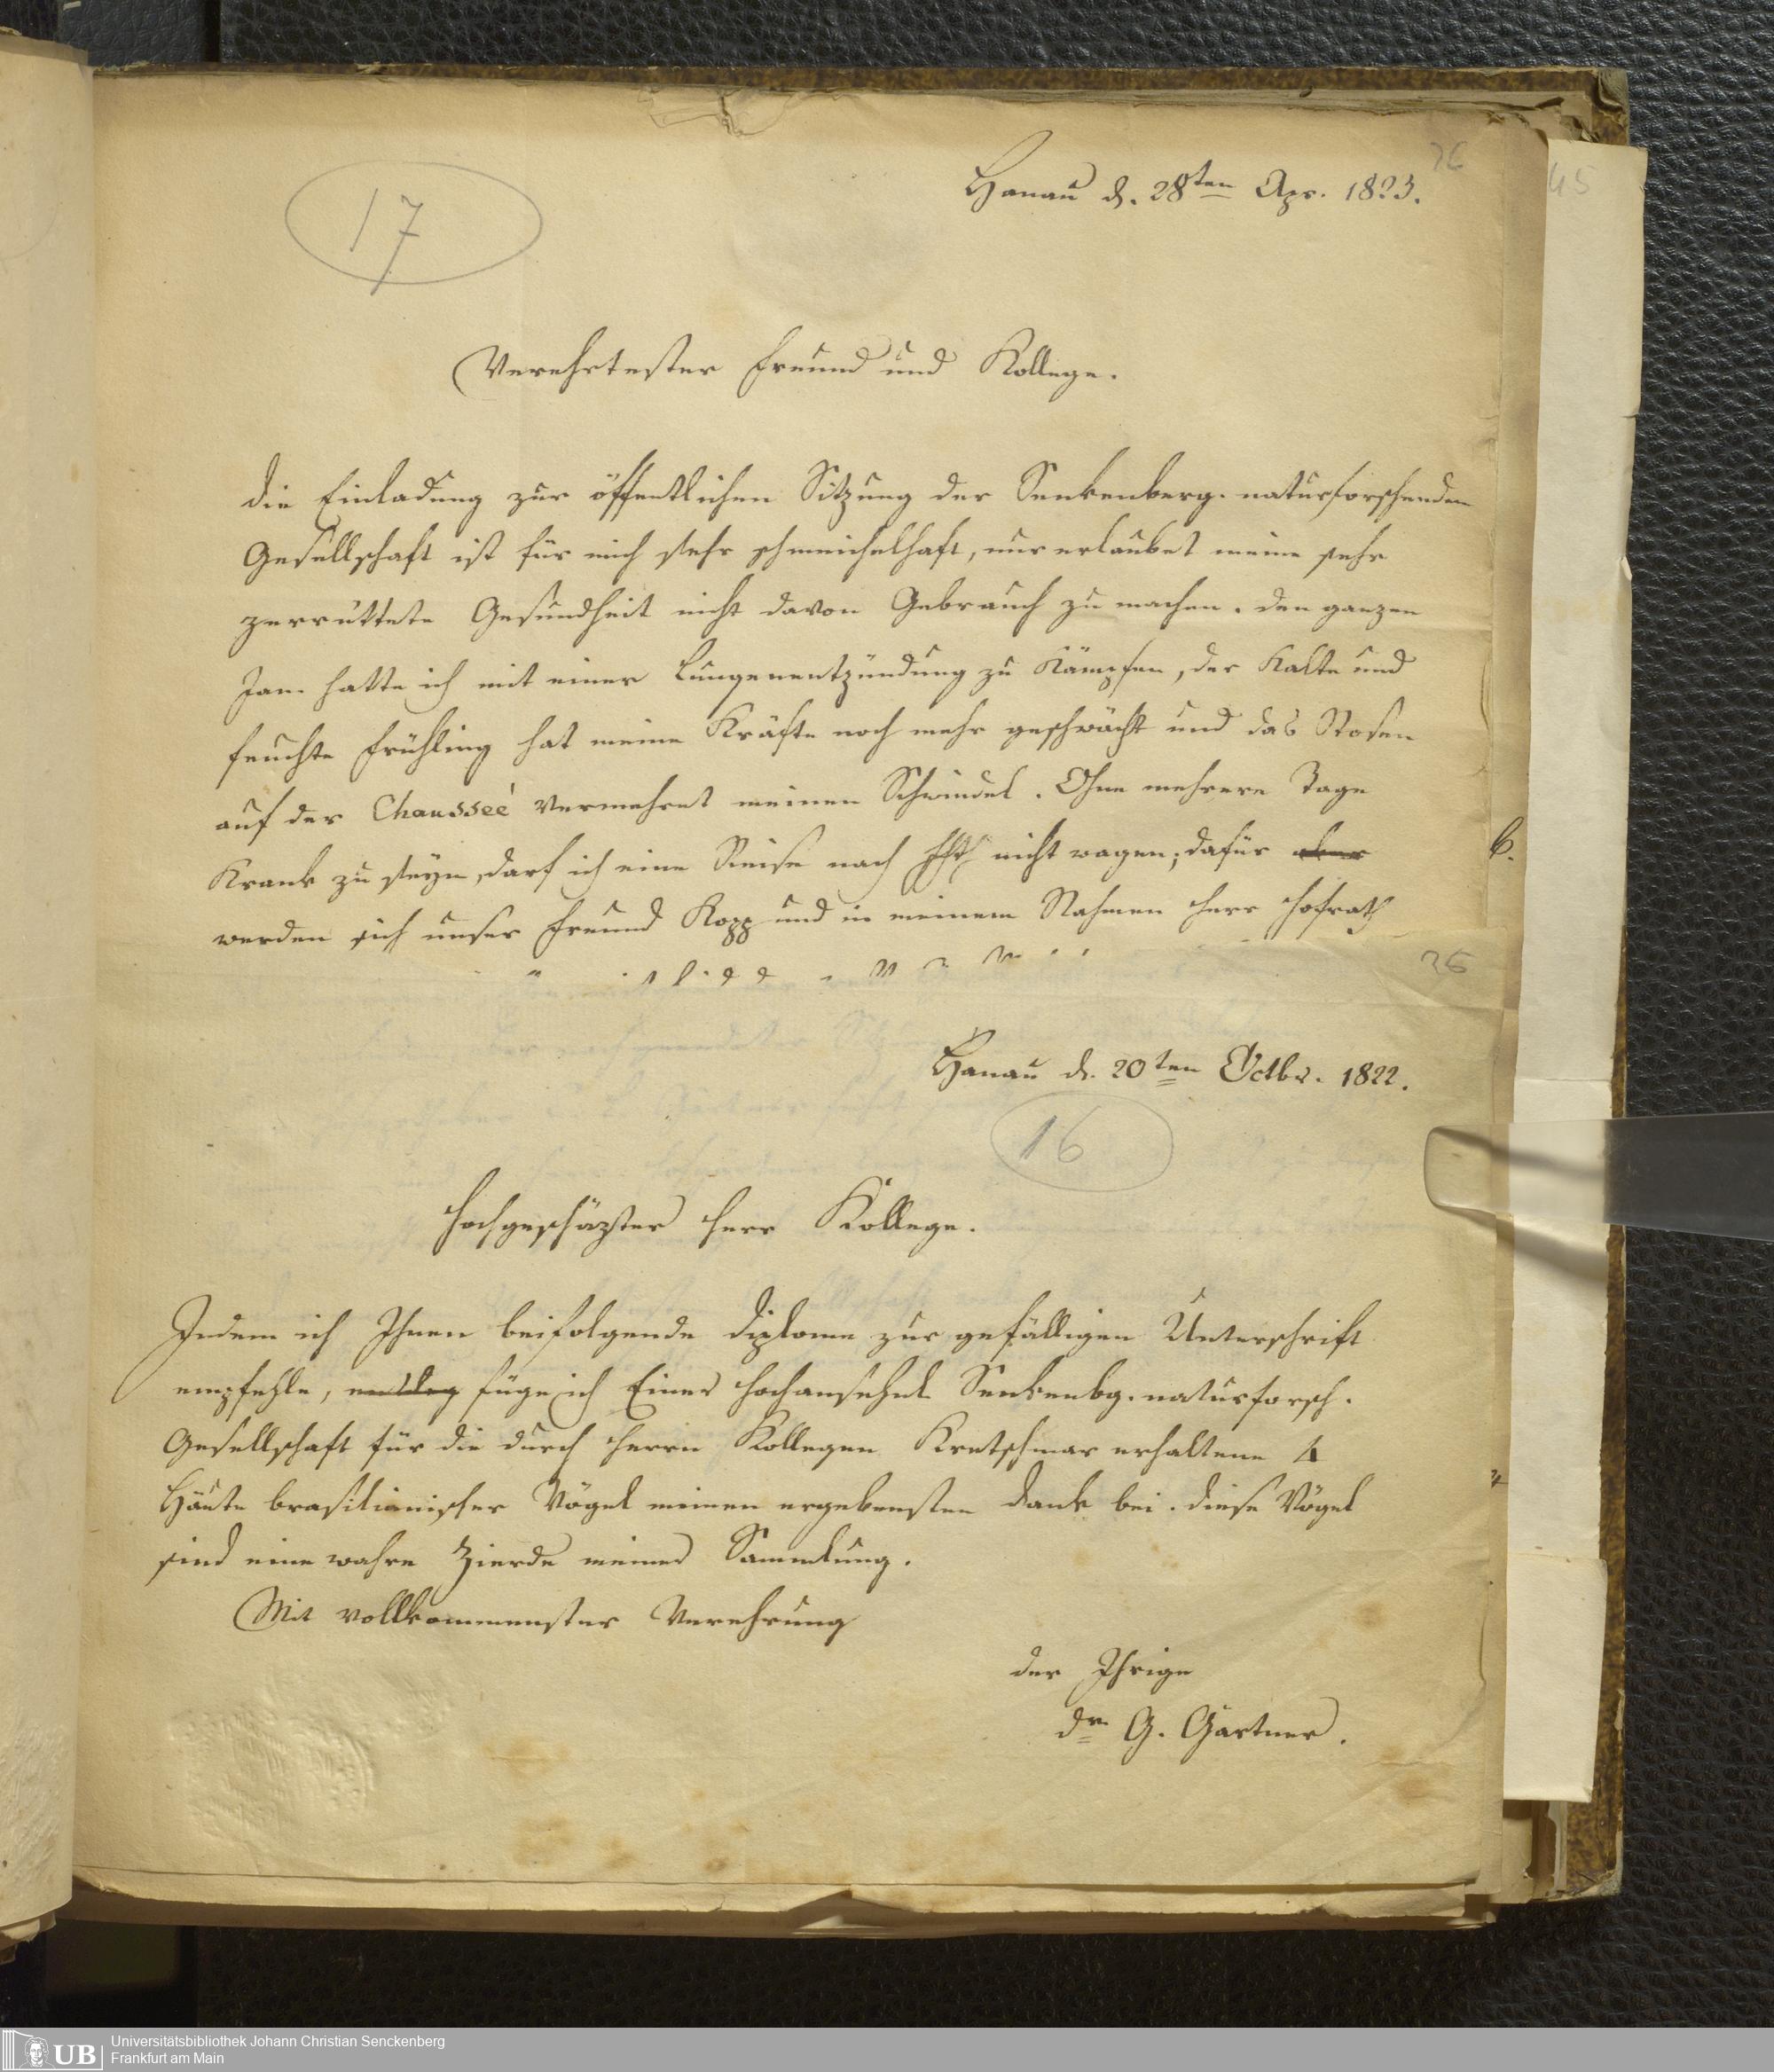 36
45
17
Hanau d. 28ten Apr. 1823.
Verehrtester Freund und Kollege.
die Einladung zur öffentlichen Sitzung der Senkenberg. naturforschenden
Gesellschaft ist für mich sehr schmeichelhaft, nur erlaubet meine sehr
zerrüttete Gesundheit nicht davon Gebrauch zu machen. den ganzen
Jan. hatte ich mit einer Lungenentzündung zu Kämpfen, der Kalte und
feuchte Frühling hat meine Kräfte noch mehr geschwächt und das Stosen
auf der Chausseé vermehret meinen Schwindel. Ohne mehrere Tage
Krank zu seyn, darf ich eine Reise nach Ffth nicht wagen; dafür aber
werden sich unser Freund Kopp und in meinem Nahmen Herr Hofrath
36
Hanau d. 20ten Octbr. 1822.
16
Hochgeschäzter Herr Kollege.
Indem ich Ihnen beifolgende Diplome zur gefälligen Unterschrift
empfehle, füge ich Einer hochansehnl. Senkenbg. naturforsch.
Gesellschaft für die durch Herrn Kollegen Kretschmar erhaltene 4
Häute brasilianischer Vögel meinen ergebensten Dank bei. diese Vögel
sind eine wahre Zierde meiner Sammlung.
Mit vollkommenster Verehrung
der Ihrige
dr. G. Gärtner.
UB
Universitätsbibliothek Johann Christian Senckenberg
Frankfurt am Main